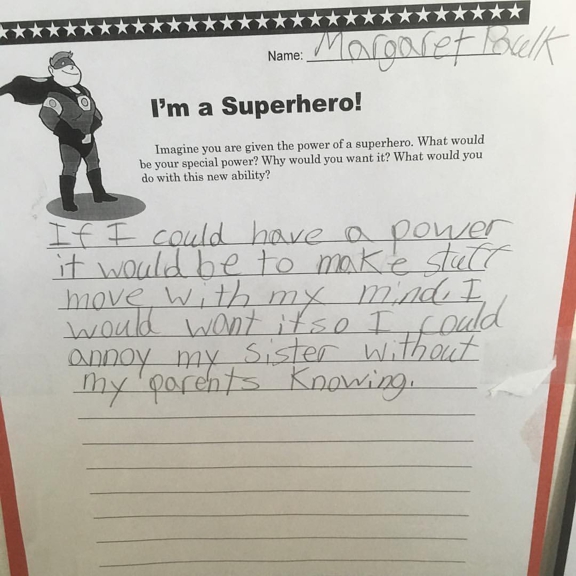 Name: Margaret Paulk
I'm a Superhero!
Imagine you are given the power of a superhero. What would
be your special power? Why would you want it? What would you
do with this new ability?
If I could have a power
it would be to make stuff
move with my mind. I
would want it so I could
annoy my sister without
my parents knowing.